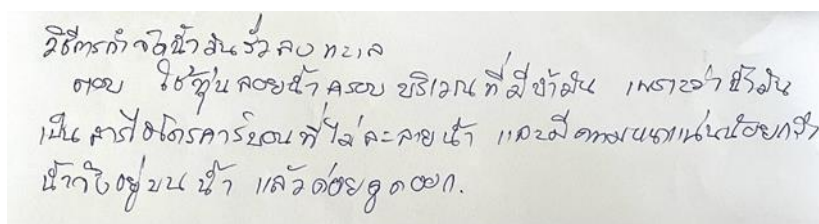 วิธีการกำจัดน้ำมันรั่วลงทะเล
ตอบ ใช้ทุ่นลอยน้ำครอบบริเวณที่มีน้ำมัน เพราะว่าน้ำมัน
เป็นสารไฮโดรคาร์บอนที่ไม่ละลายน้ำ และมีความหนาแน่นน้อยกว่า
น้ำจึงอยู่บนน้ำ แล้วค่อยดูดออก.